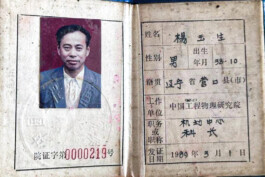 姓名 楊玉生
性别 男 出生年月 38.10
籍贯 辽宁省营口县(市)
工作单位 中国工程物理研究院
职务或职称 机动中心科长
发证日期 1989年3月1日
院证字第0000219号